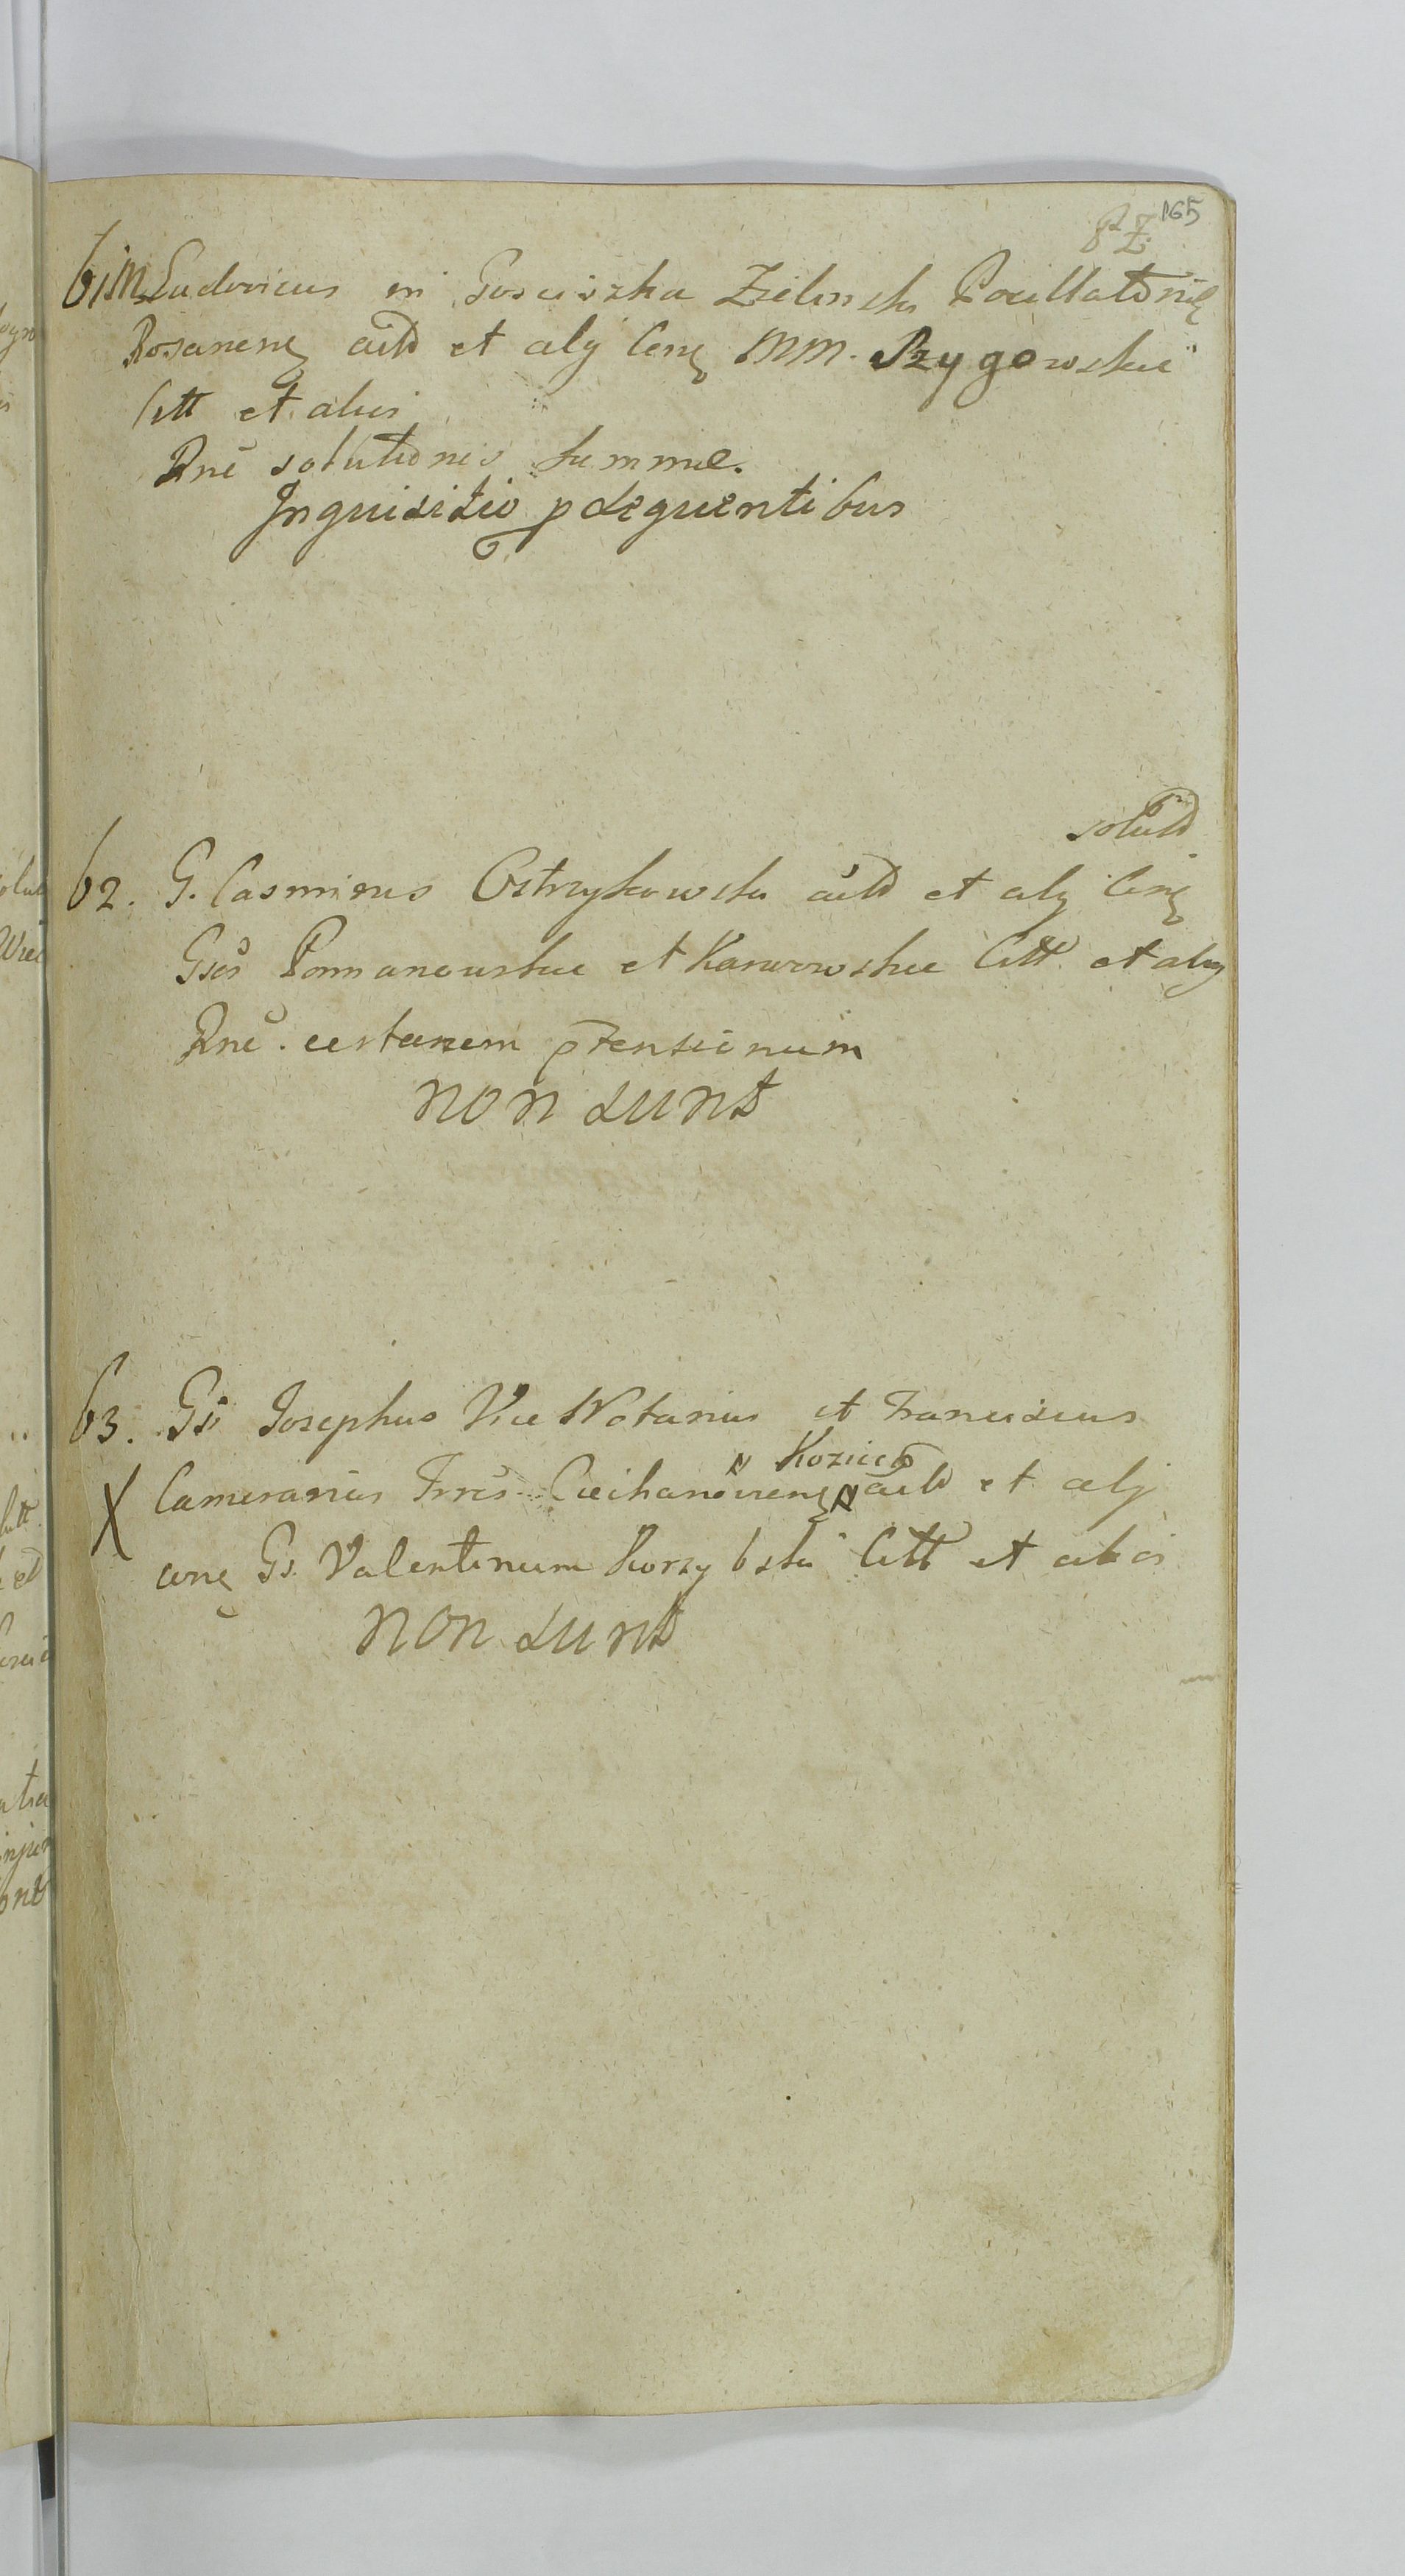 165
61 M. Ludovicus in Gosciszka Zielinski Pocillator
Rosanens actd et alij Cens MM. Rzygowskie
Citt et alius
Rne solutionis summae.
Inquisitio p sequentibus
solutd
62. G. Casmirus Ostrzykowski actd et alij Cens
Gsos Pomianowskie et Karwowskie Citt et alios
Rne. certarum ptensionum
non sunt
63. Gsi Josephus Vice Notarius et Franciscus
Kozicc
X Camerarius Trrs Ciechanoviens actd et alj
cens Gs. Valentinum Korzybski Citt et alios
non sunt